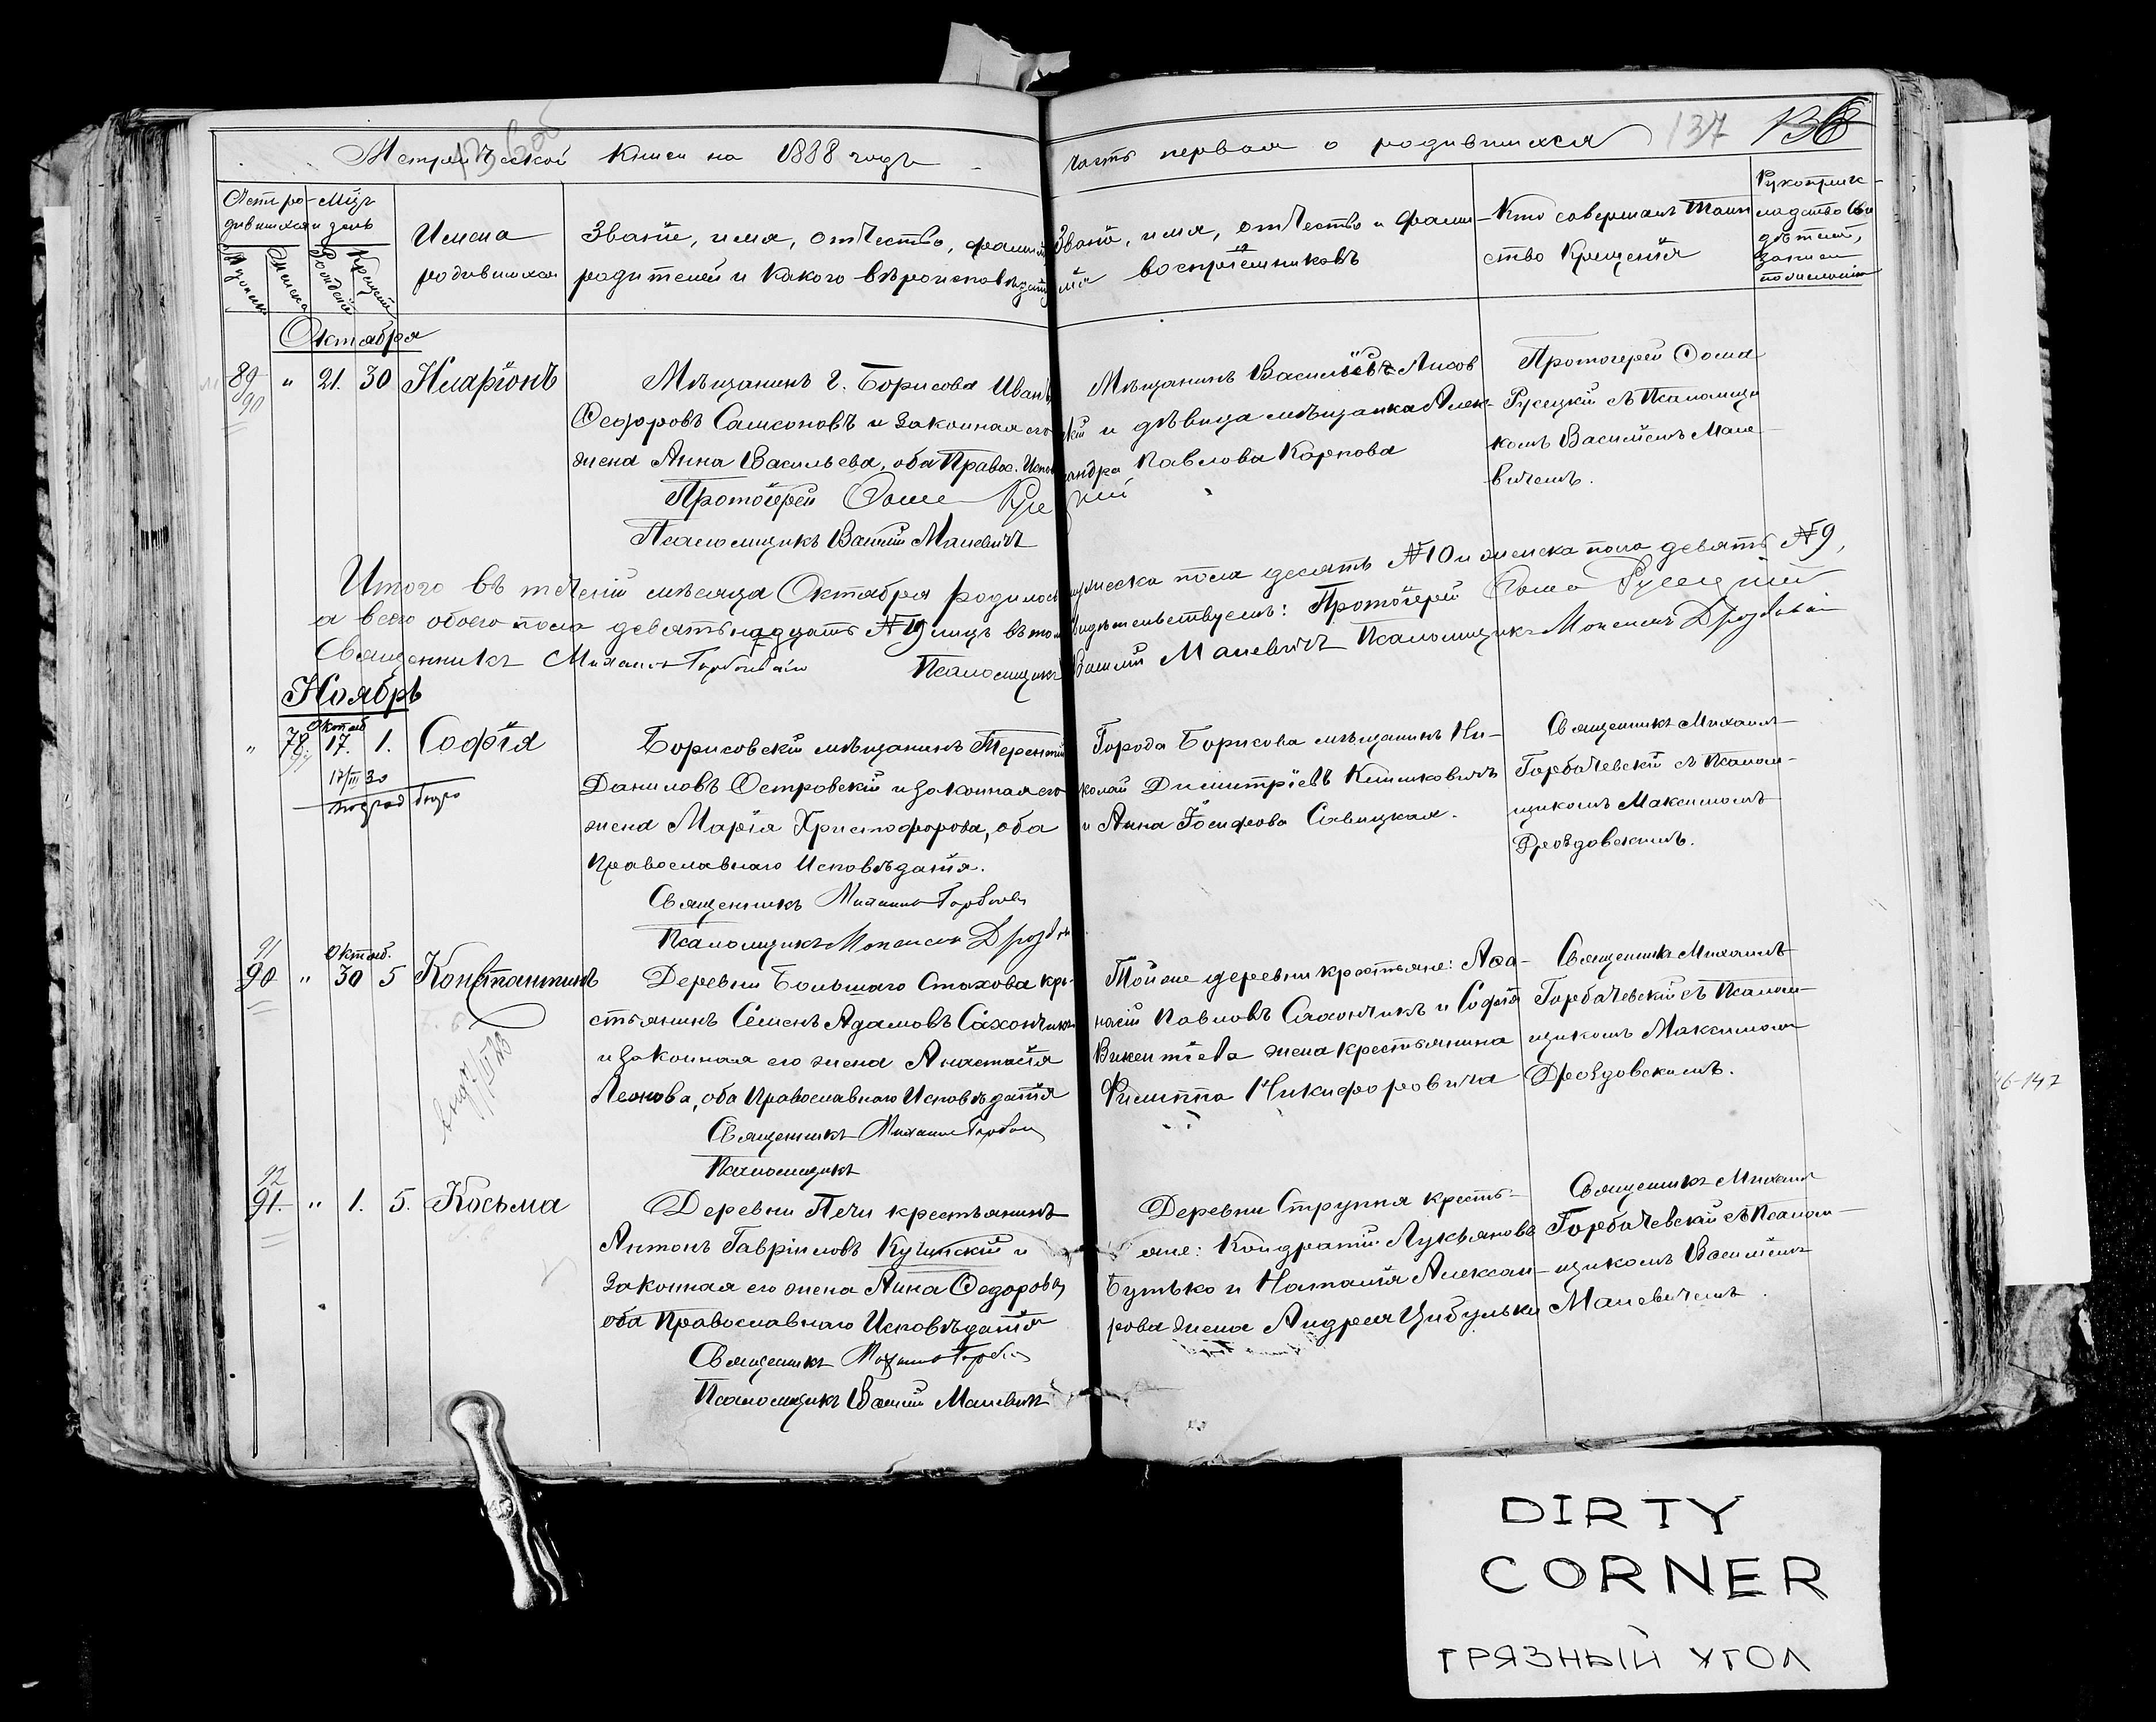 Метрической книги на 1888 годъ
часть первая о родившихся 137 136
Счетъ ро- Мѣц.
дившихся и день
Имена
родившихся
Званіе, имя, отчество, фамилія
родителей и какого вѣроисповѣданія
Званіе, имя, отчество и фами-
лія воспріемниковъ
Кто совершалъ таин
ство Крещенія
Рукоприк-
ладство сви
дѣтелей,
записи
по желанію
Октября
89 " 21. 30 Иларіонъ
90
Мѣщанинъ г. Борисова Иванъ
Ѳеодоровъ Самсоновъ и законная его
жена Анна Васильева, оба Правос. Испов
Протоіерей Ѳома Русецкій
Псаломщикъ Василій Малевичъ
Мѣщанинъ Василій Лисов
скій и дѣвица мѣщанка Алек-
сандра Павлова Карпова
Протоіерей Ѳома
Русецкій съ Псаломщи
комъ Василіемъ Мале-
вичемъ.
Итого въ теченіи мѣсяца Октября родилось мужеска пола десять №10 и женска пола девять №9,
а всего обоего пола девятнадцать №19 лицъ въ томъ свидѣтельствуемъ: Протоіерей Ѳома Русецкій
Священникъ Михаилъ Горбачевскій Псаломщикъ Василій Малевичъ Псаломщикъ Максимъ Дроздовскій
Ноябрь
Октяб
" 78. 17. 1. Софія
17/III 30
Борисовскій мѣщанинъ Терентій
Даниловъ Островскій и законная его
жена Марія Христофорова, оба
Православнаго Исповѣданія.
Священникъ Михаилъ Горбачев
Псаломщикъ Максимъ Дроздов
Города Борисова мѣщанинъ Ни-
колай Димитріевъ Климковичъ
и Анна Іосифова Савицкая.
Священникъ Михаилъ
Горбачевскій съ Псалом-
щикомъ Максимомъ
Дроздовскимъ.
91 Октяб.
90 " 30 5 Константинъ
Деревни Большаго Стахова кре-
стьянинъ Семенъ Адамовъ Сахончикъ
и законная его жена Анастасія
Леонова, оба Православнаго Исповѣданія
Священникъ Михаилъ Горбач
Псаломщикъ
Той же деревни крестьяне: Аѳа-
насій Павловъ Сахончикъ и Софія
Викентіева жена крестьянина
Филиппа Никифоровича
Священникъ Михаилъ
Горбачевскій съ Псалом-
щикомъ Максимомъ
Дроздовскимъ.
92
91. " 1. 5. Косьма
Деревни Печи крестьянинъ
Антонъ Гавріиловъ Кучинскій и
законная его жена Анна Ѳедорова,
оба Православнаго Исповѣданія
Священникъ Михаилъ Горбач
Псаломщикъ Василій Малевичъ
Деревни Струпня кресть-
яне: Кондратій Лукьяновъ
Бутько и Наталія Алексан-
рова жена Андрея Цибульки
Священникъ Михаилъ
Горбачевскій съ Псалом-
щикомъ Василіемъ
Малевичемъ
46-147
DIRTY
CORNER
ГРЯЗНЫЙ УГОЛ